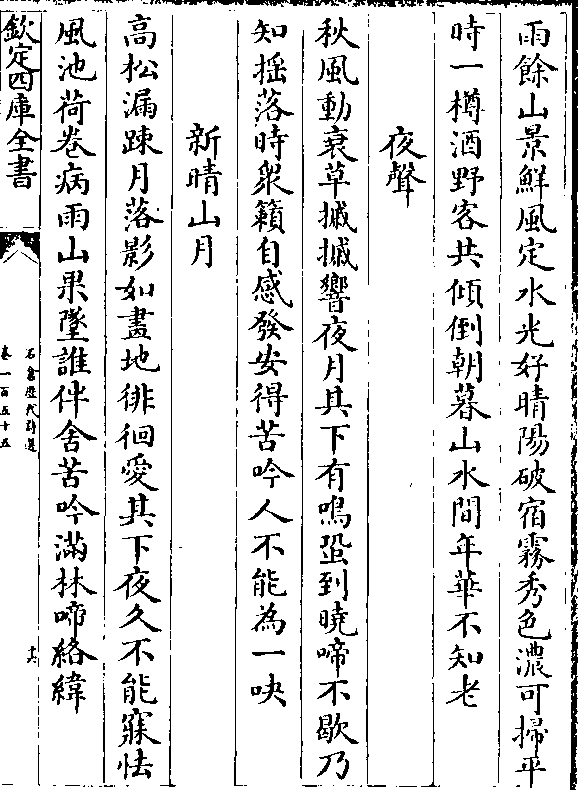 雨餘山景鮮風定水光好晴陽破宿霧秀色濃可掃平
時一樽酒野客共傾倒朝暮山水間年華不知老
夜聲
秋風動衰草摵摵響夜月其下有鳴蛩到曉啼不歇乃
知揺落時衆籟自感發安得苦吟人不能為一吷
新晴山月
高松漏踈月落影如畫地徘徊愛其下夜久不能寐怯
風池荷卷病雨山果墜誰伴舍苦吟滿林啼絡緯
欽定四庫全書
石倉歴代詩選
卷一百五十五
十六